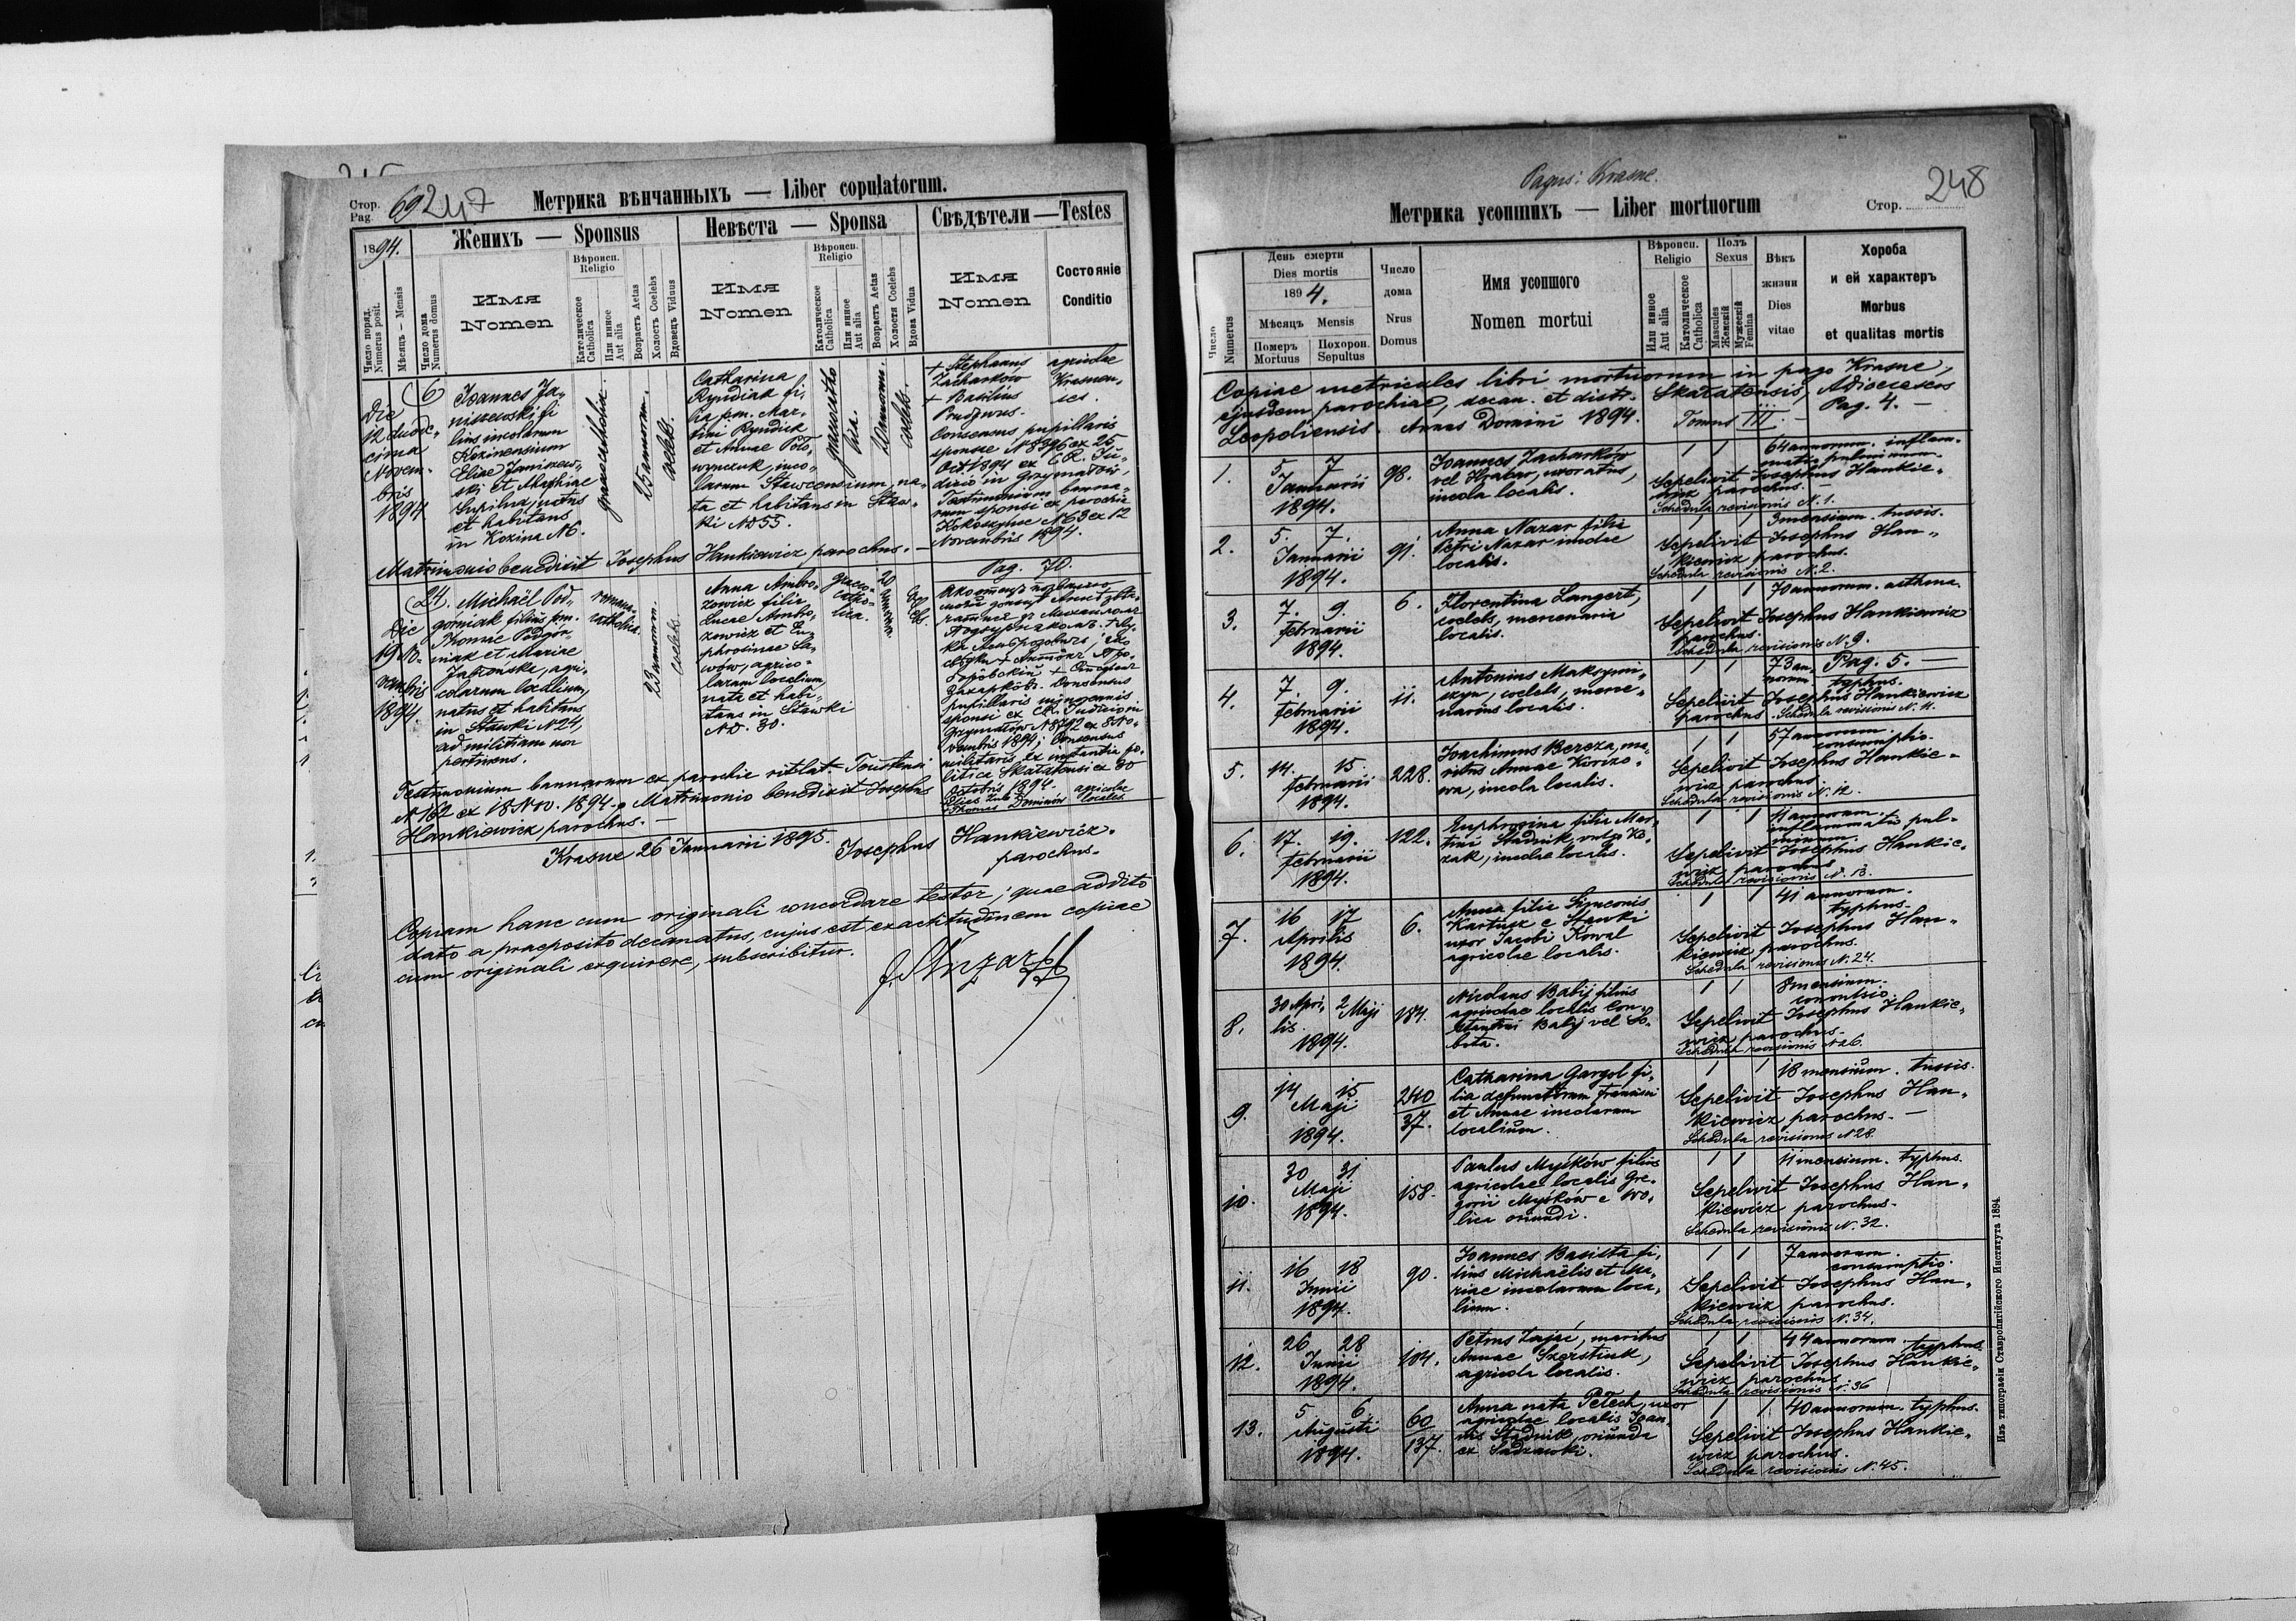 Стор.
Pag.
69
247
Метрика вѣнчанныхъ — Liber copulatorum.
1894.
Женихъ — Sponsus
Невѣста — Sponsa
Свѣдѣтели — Testes
Число поряд.
Numerus posit.
Мѣсяцъ — Mensis
Число дома
Numerus domus
Имя
Nomen
Вѣроисп.
Religio
Католическое
Catholica
Или иное
Aut alia
Возрастъ Aetas
Холостъ Coelebs
Вдовецъ Viduus
Имя
Nomen
Вѣроисп.
Religio
Католическое
Catholica
Или иное
Aut alia
Возрастъ Aetas
Холостя Coelebs
Вдова Vidua
Имя
Nomen
Состояніе
Conditio
6
Die
12 duode-
cima
Novem-
bris
1894
Joannes Ja-
niszewski fi
lius incolarum
Kozinensium
Eliae Janiszew-
ski et Magdae
natus
et habitans
in Kozina N6.
graecocatholica.
25 annorum.
coelebs.
Catharina
Ryndiak fi-
lia pm. Mar-
tini Ryndiak
et Annae Poto-
wynczuk, inco-
larum Stawcensium, na-
ta et habitans in Staw-
ki ND 55.
graecocatho
lica.
20 annorum.
coelebs.
+ Stephanus
Zacharków
+ Basilius
agricolae
Krasnen-
ses.
Consensus pupillaris
sponsae N 8396 ex 25
Oct 1894 ex C.R. Ju-
dicio in Grzymałów,
Testimonium banno-
rum sponsi ex parochia
N 63 ex 12
Novembris 1894.
Matrimonio benedixit Josephus Hankiewicz parochus. —
Pag. 70.
24.
Die
19 No-
vembris
1894
Michaël Pod-
górniak filius pm.
Thomae Podgór-
niak et Mariae
Jabłońska, agri-
colarum localium,
natus et habitans
in Stawki N 24,
ad militiam non
pertinens.
romano-
catholica.
23 annorum.
coelebs.
Anna Ambro-
zowicz filia
Lucae Ambro-
zowicz et Eu-
phrosinae Sa-
wów, agrico-
larum localium,
nata et habi-
tans in Stawki
ND. 30.
graeco-
catho-
lica.
20
annorum
Consensus
pupillaris
sponsi ex C.R. Judicio in
Grzymałów N 8792 ex 8 No-
vembris 1894; Consensus
militaris ex instantia po-
litica Skałatensi ex 30
Octobris 1894.
agricolae
locales
Testimonium bannorum ex parochia rit. lat. Toustensi
N 162 ex 18 Nov. 1894. Matrimonio benedixit Josephus
Hankiewicz parochus. —
Krasne 26 Januarii 1895. Josephus Hankiewicz.
parochus.
Copiam hanc cum originali concordare testor; quae addito
dato a praeposito decanatus, cujus est exactitudinem copiae
cum originali exquirere, subscribitur.
Pagus: Krasne.
248
Метрика усопшихъ — Liber mortuorum
Стор.
Число
Numerus
День смерти
Dies mortis
1894.
Мѣсяцъ Mensis
Померъ
Mortuus
Похорон.
Sepultus
Число
дома
Nrus
Domus
Имя усопшого
Nomen mortui
Вѣроисп.
Religio
Или иное
Aut alia
Католическое
Catholica
Полъ
Sexus
Mascules
Женскій
Мужескій
Femina
Вѣкъ
жизни
Dies
vitae
Хороба
и ей характеръ
Morbus
et qualitas mortis
Copiae metricales libri mortuorum in pago Krasne,
ejusdem parochiae, decan. et distr. Skałatensis, Adioecesos
Leopoliensis. Annus Domini 1894. Tomus III. — Pag. 4. —
1. 5 7
Januarii
1894.
98.
Joannes Zacharków
vel Hrabar, uxoratus,
incola localis.
1 1 64 annorum. inflam-
matio pulmonum.
Sepelivit Josephus Hankie-
wicz parochus. —
Schedula revisionis N. 1.
2. 5. 7.
Januarii
1894.
91.
Anna Nazar filia
Petri Nazar incolae
localis.
1 1 3 mensium. tussis.
Sepelivit Josephus Han-
kiewicz parochus.
Schedula revisionis N. 2.
3. 7. 9.
Februarii
1894.
6.
Florentina Langert,
coelebs, mercenaria
localis.
1 1 70 annorum. asthma.
Sepelivit Josephus Hankiewicz
parochus.
Schedula revisionis N. 9.
Pag. 5. —
4. 7. 9.
Februarii
1894.
11.
Antonius Maksymi-
szyn, coelebs, merce-
narius localis.
1 1 73 an-
norum. typhus.
Sepelivit Josephus Hankiewicz
parochus. Schedula revisionis N. 11.
5. 14. 15.
Februarii
1894.
228.
Joachimus Bereza, ma-
ritus Annae Korizo-
wa, incola localis.
1 1 57 annorum.
consumptio.
Sepelivit Josephus Hankie-
wicz parochus.
Schedula revisionis N. 12.
6. 17. 19.
Februarii
1894.
122.
Euphrosina filia Mar-
tini Stadnik, vulgo Ko-
zak, incolae localis.
1 1 11 annorum.
inflammatio pul-
monum.
Sepelivit Josephus Hankie-
wicz parochus
Schedula revisionis N. 13.
7. 16 17
Aprilis
1894.
6.
Anna filia Simeonis
Kartusz e Stawki
uxor Jacobi Kowal
agricolae localis.
1 1 41 annorum.
typhus.
Sepelivit Josephus Han-
kiewicz parochus.
Schedula revisionis N. 24.
8. 30 Apri- 2 Maji
lis
1894.
184.
Nicolaus Babij filius
agricolae localis Con-
stantini Babij vel So-
bota.
1 1 8 mensium.
convulsio.
Sepelivit Josephus Hankie-
wicz parochus.
Schedula revisionis N 26.
9. 14 15
Maji
1894.
240
37.
Catharina Gargol fi-
lia defunctorum Francisci
et Annae incolarum
localium.
1 1 18 mensium. tussis.
Sepelivit Josephus Han-
kiewicz parochus. —
Schedula revisionis N 28.
10. 30 31
Maji
1894.
158.
Paulus Myśków filius
agricolae localis Gre-
gorii Myśków e Wo-
lica oriundi.
1 1 11 mensium. typhus.
Sepelivit Josephus Han-
kiewicz parochus.
Schedula revisionis N. 32.
11. 16 18
Junii
1894.
90.
Joannes Basista fi-
lius Michaëlis et Ma-
riae incolarum loca-
lium.
1 1 7 annorum.
consumptio.
Sepelivit Josephus Han-
kiewicz parochus.
Schedula revisionis N. 34.
12. 26 28
Junii
1894.
104.
Petrus Zając, maritus
Annae Szerstiuk,
agricola localis.
1 1 44 annorum. typhus.
Sepelivit Josephus Hankie-
wicz parochus.
Schedula revisionis N. 36
13. 5 6
Augusti
1894.
60
137.
Anna nata Petech, uxor
agricolae localis Joan-
nis Stadnik, oriunda
ex Sadzawki.
1 1 40 annorum. typhus.
Sepelivit Josephus Hankie-
wicz parochus.
Schedula revisionis N. 45.
Изъ типографіи Ставропигійского Института 1894.